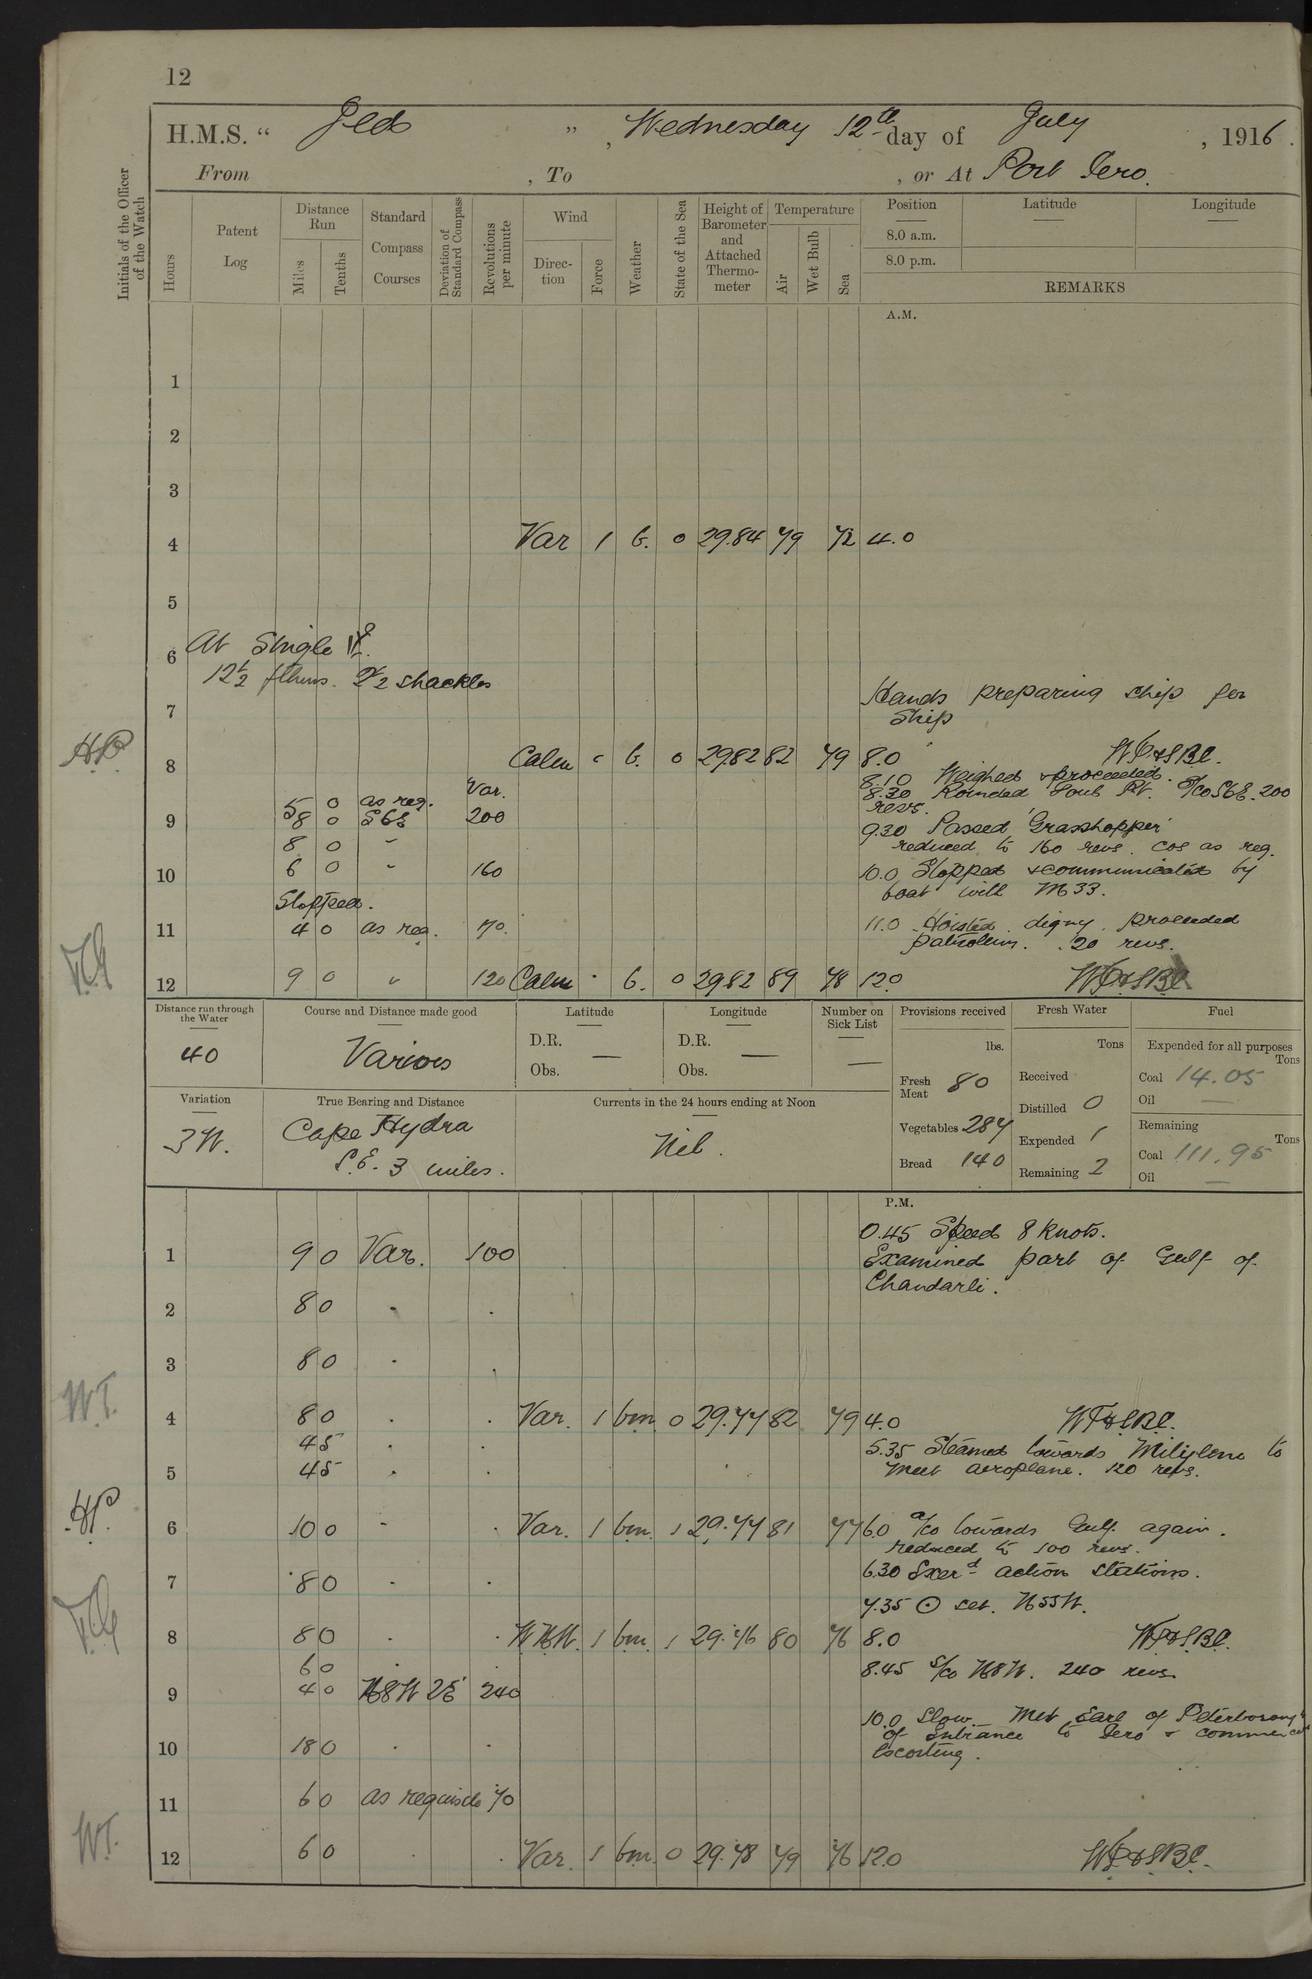 12
H.M.S. " Jed ", Wednesday 12th day of July, 1916.
From , To , or At Port Iero.
Initials of the Officer of the Watch
Hours
Patent Log
Distance Run
Miles
Tenths
Standard Compass Courses
Deviation of Standard Compass
Revolutions per minute
Wind
Direction
Force
Weather
State of the Sea
Height of Barometer and Attached Thermometer
Temperature
Air
Wet Bulb
Sea
Position
8.0 a.m.
8.0 p.m.
Latitude
Longitude
REMARKS
A.M.
1
2
3
4 Var 1 b. 0 29.84 79 72 4.0
5
6 At Single
12½ fthms. 2½ shackles
Hands preparing ship for
7 ship
8 Calm - b. 0 29.82 82 79 8.0
8.10 Weighed & proceeded.
Var. 8.30 Rounded South Pt. a/co S6E. 200
5 0 as req. revs.
9 8 0 S6E 200
9.30 Passed 'Grasshopper'
8 0 " reduced to 160 revs. Cos as req.
10 6 0 " 160 10.0 Stopped & communicated by
boat with M33.
Stopped.
11 4 0 as req. 70. 11.0 Hoisted digny. proceeded
patrolling. 120 revs.
12 9 0 " 120 Calm - b. 0 29.82 89 78 12.0
Distance run through the Water
40
Course and Distance made good
Various
Latitude
D.R. —
Obs.
Longitude
D.R. —
Obs.
Number on Sick List
—
Provisions received
lbs.
Fresh Meat 80
Vegetables 284
Bread 140
Fresh Water
Tons
Received
Distilled 0
Expended 1
Remaining 2
Fuel
Expended for all purposes
Tons
Coal 14.05
Oil —
Remaining
Tons
Coal 111.95
Oil —
Variation
3 W.
True Bearing and Distance
Cape Hydra
S.E. 3 miles.
Currents in the 24 hours ending at Noon
Nil.
P.M.
0.45 Speed 8 knots.
1 9 0 Var. 100 Examined part of Gulf of
Chandarli.
2 8 0 " "
3 8 0 " "
W.T.
4 8 0 " " Var. 1 bm. 0 29.77 82 79 4.0
4 5 " " 5.35 Steamed towards Mitylene to
5 4 5 " meet aeroplane. 120 revs.
6 10 0 " " Var. 1 bm. 1 29.77 81 77 6.0 a/co towards Gulf again.
reduced to 100 revs.
6.30 Exerd action stations.
7 8 0 " "
7.35 ☉ set. N55W.
8 8 0 " " W.N.W. 1 bm. 1 29.76 80 76 8.0
6 0 " " 8.45 s/co N8W. 240 revs.
9 4 0 N8W 2E 240
10.0 Slow. Met Earl of Peterborough
of Entrance to Iero & commenced
10 18 0 " " Escorting.
11 6 0 as requisite 70
W.T.
12 6 0 " " Var. 1 bm. 0 29.78 79 76 12.0